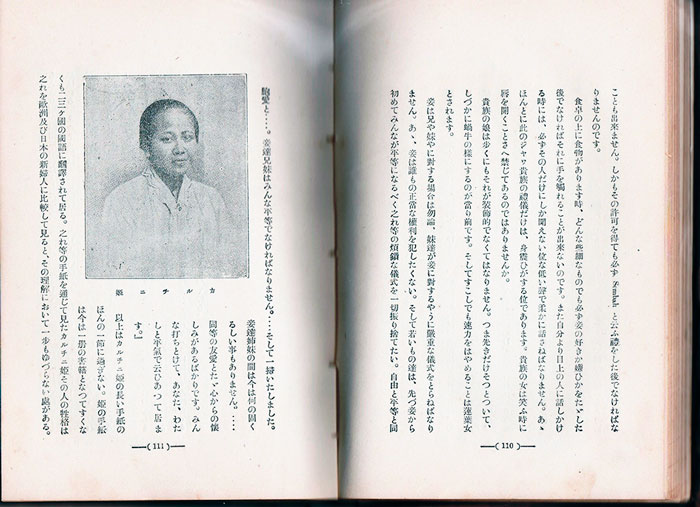 ことも出來ません。しかもその許可を得ても必ず Sembah と云ふ禮をした後でなければな
りませんのです。
食卓の上に食物があります時、どんな些細なものでも必ず妾の好きか嫌ひかをたゞした
後でなければそれに手を觸れることが出來ないのです。また自分より目上の人に話しかけ
る時には、必ずその人だけにしか聞えない位な低い聲で柔かに話さねばなりません。あゝ
ほんとに此のジャワ貴族の禮儀だけは、身震ひがする位であります。貴族の女は笑ふ時に
唇を開くことさへ禁じてあるのではありませんか。
貴族の娘は歩くにもそれが裝飾的でなくてはなりません。つま先きだけそつとついて、
しづかに蝸牛の樣にするのが當り前です。そしてすこしでも速力をはやめることは蓮葉女
とされます。
妾は兄や妹やに對する場合は勿論、妹達が妾に對するやうに嚴重な儀式をとらねばなり
ません。あゝ、妾は誰もの正當な權利を犯したくない。そして若いもの達は、先づ妾から
初めてみんなが平等になるべく之れ等の煩鎖な儀式を一切振り捨てたい。自由と平等と同
―( 110 )―
胞愛と‥‥。妾達兄妹はみんな平等でなければなりません。‥‥そして一掃いたしました。
妾達姉妹の間は今は何の固く
るしい事もありません。‥‥
同等の友愛とたゞ心からの懷
しみがあるばかりです。みん
な打ちとけて、あなた、わた
しと平氣で云ひあつて居ま
す。』
以上はカルチニ姫の長い手紙の
ほんの一節に過ぎない。姫の手紙
は今は一册の書籍となつてすくな
カルチニ姫
くも二三ケ國の國語に飜譯されて居る。之れ等の手紙を通じて見たカルチニ姫その人の性格は
之れを歐洲及び日本の新婦人に比較して見ると、その理解において一歩もゆづらない處がある。
―( 111 )―